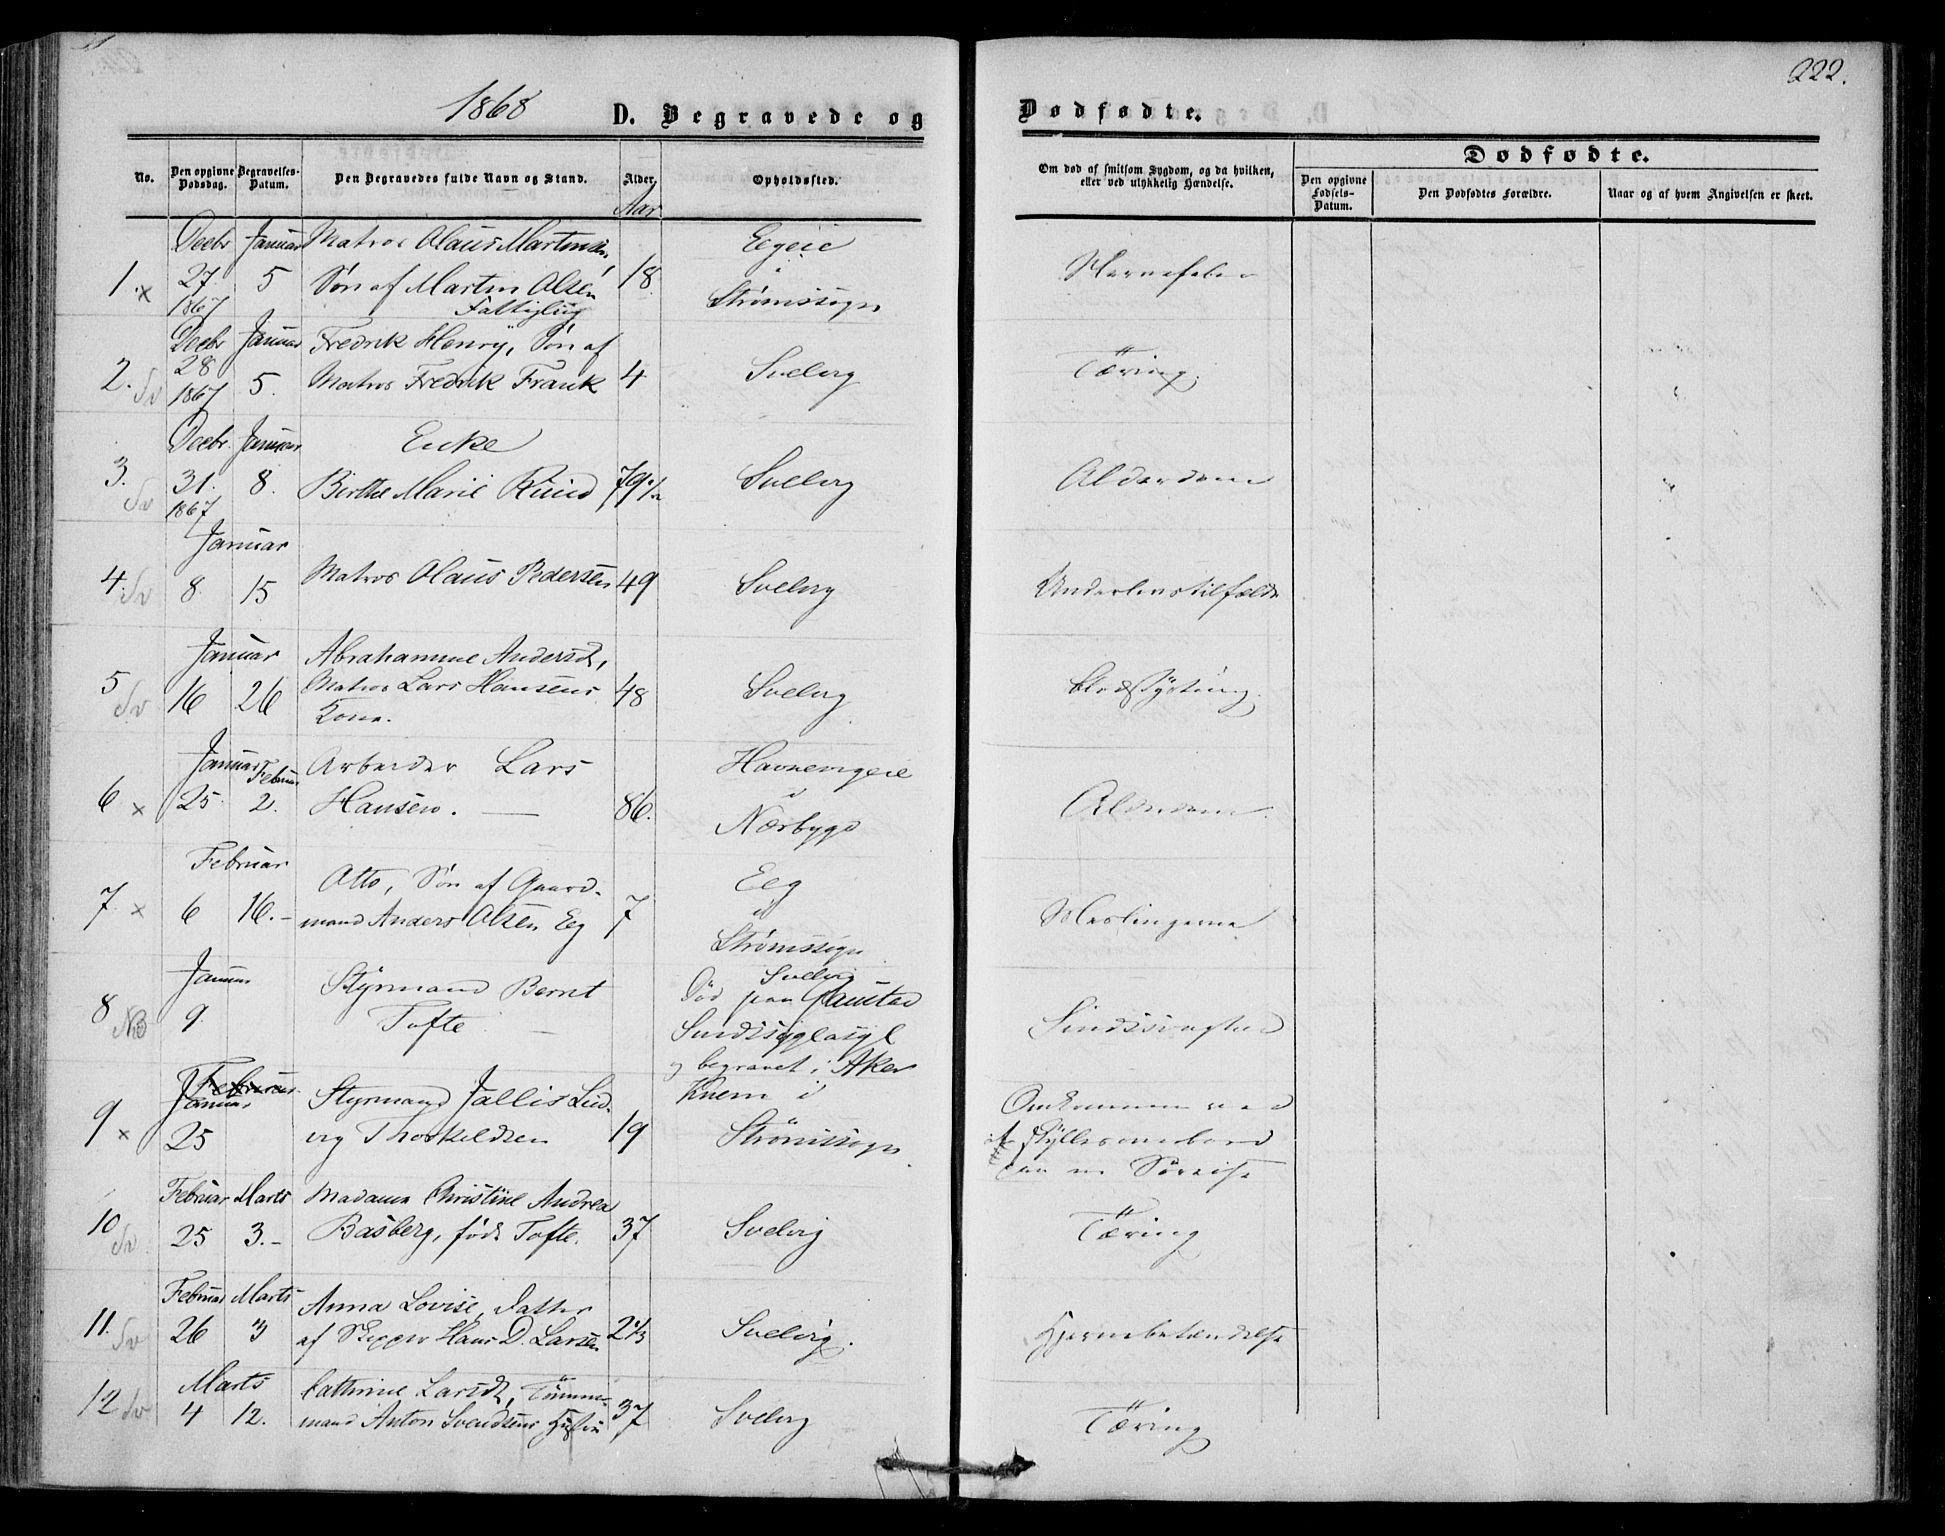 222.
1868 D. Begravede og Dødfødte.
No.
Den opgivne Dødsdag.
Begravelses-Datum.
Den Begravedes fulde Navn og Stand.
Alder.
Opholdssted.
Om død af smitsom Sygdom, og da hvilken,
eller ved ulykkelig Hændelse.
Dødfødte.
Den opgivne Fødsels-Datum.
Den Dødfødtes Forældre.
Naar og af hvem Angivelsen er skeet.
Aar
Decbr Januar Matros Olaus Martinsen, Eegeie
1. x 27 5 Søn af Martin Olsen 18 i Strømssogn
1867 Fattiglug
Decbr Januar Fredrik Henry, Søn af
2. Sv 28 1867 5. Matros Fredrik Frank 4 Svelvig Tæring.
Decbr. Januar Enke
3. Sv 31. 1867 8. Birthe Marie Ruud 79½ Svelvig Alderdom
Januar
4. Sv 8. 15 Matros Olaus Pedersen 49 Svelvig Underlivstilfælde
Januar Abrahamine Andersd,
5 Sv 16 26 Matros Lars Hansens 48 Svelvig Blodstyrtning.
Kone.
Januar Februar Arbeider Lars Havnevigeie
6 x 25. 2. Hansen. — 86. i Nærbygd Alderdom.
Februar Otto, Søn af Gaard- Eeg
7 x 6 16.- mand Anders Olsen Eeg 7 i Strømssogn Meslingerne
Januar Styrmand Bernt Svelvig
8 NB 9. Tofte — Død paa Gaustad
Sindssygeasyl Sindssvaghed
og begravet i Aker
Februar
Januar Styrmand Jallis Lud- Knem i Omkommen ved
9 x 25 vig Thorkildsen 19 Strømssogn. at skylles overbord
paa en Søreise
Februar Marts Madame Christine Andrea
10 Sv. 25 3.- Basberg, født Tofte. 37 Svelvig Tæring
Februar Marts Anna Lovise, Datter
11. Sv 26 3 af Skipper Hans D. Larsen 2⅓ Svelvig. Hjernebetændelse
Marts Cathrine Larsdt, Tømmer-
12 Sv 4 12. mand Anton Svendsens Hustru 37 Svelvig Tæring